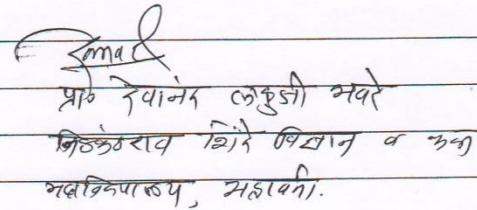 प्रा. देवानंद लहुजी भवरे
निळकंठराव शिंदे विज्ञान व कला
महाविद्यालय, भद्रावती.